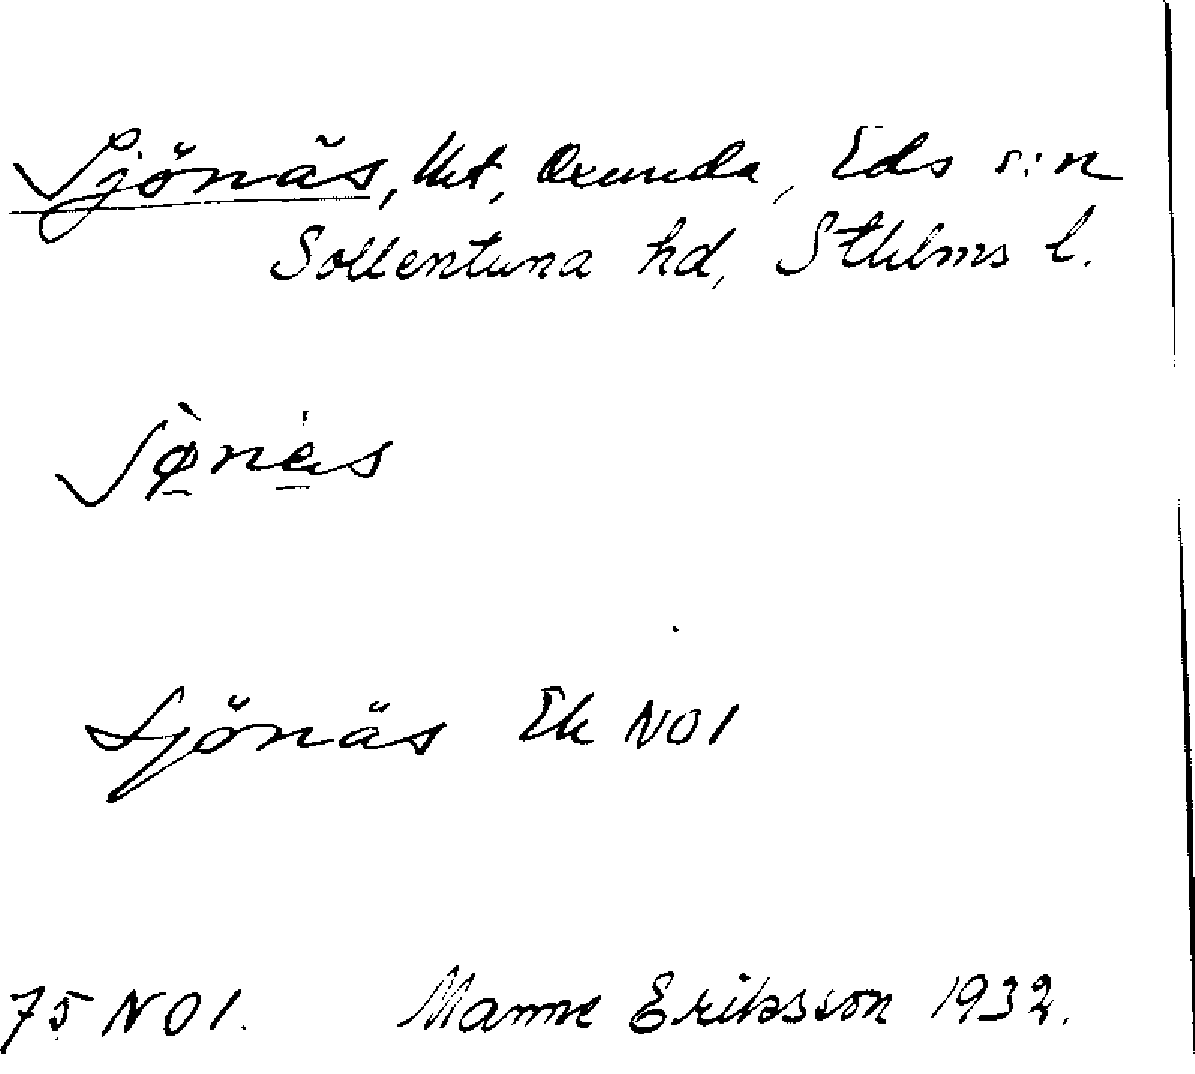 Sjönäs, lht, Oxunda, Eds s:n
Sollentuna hd, Sthlms l.
Sjönäs Ek NO1
75 NO1. Manne Eriksson 1932.